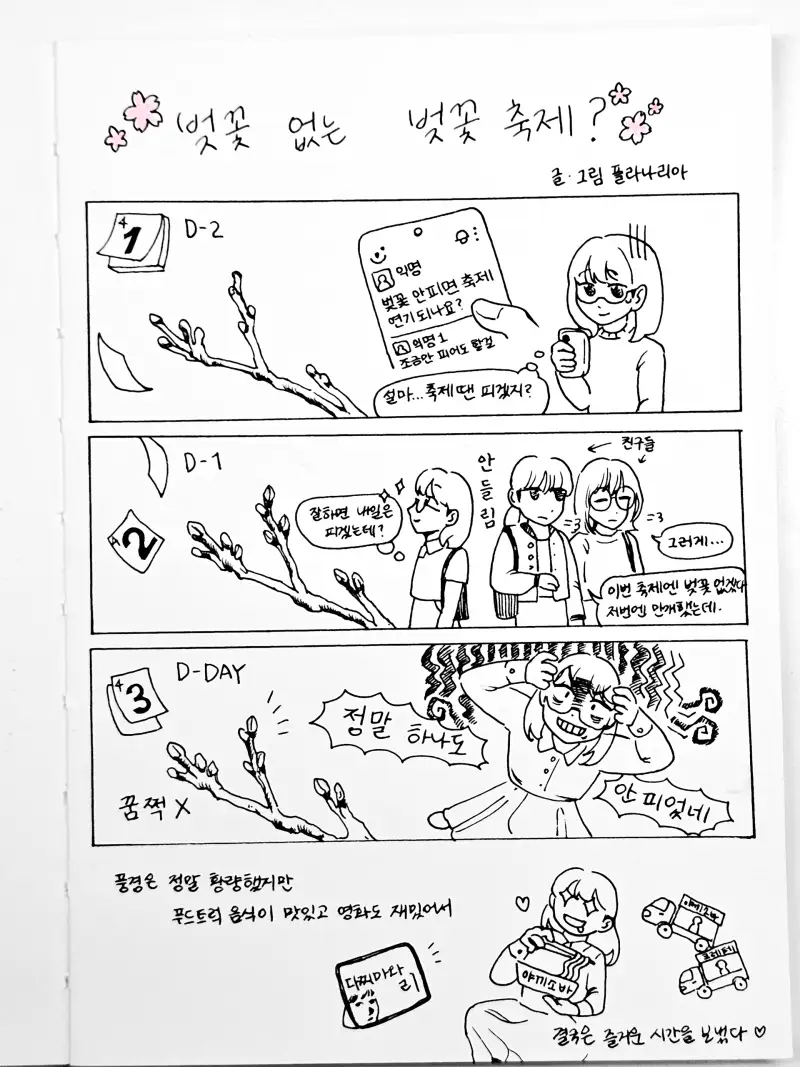 벚꽃 없는 벚꽃 축제?
글·그림 플라나리아
4
1
D-2
익명
벚꽃 안피면 축제
연기되나요?
익명1
조금만 피어도 할걸
설마... 축제땐 피겠지?
4
2
D-1
잘하면 내일은
피겠는데?
안들림
친구들
=3
=3
그러게...
이번 축제엔 벚꽃 없겠다
저번엔 만개했는데.
4
3
D-DAY
꿈쩍 X
정말 하나도
안 피었네
풍경은 정말 황량했지만
푸드트럭 음식이 맛있고 영화도 재밌어서
다찌마와
리
야끼소바
야끼소바
결국은 즐거운 시간을 보냈다 ♡